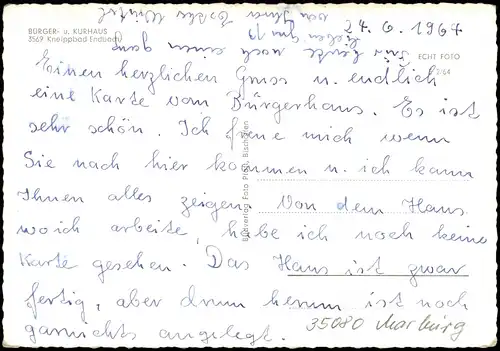 24. 6. 1964
BÜRGER- u. KURHAUS
3569 Kneippbad Endbach
ECHT FOTO
Einen herzlichen Gruss u. endlich
eine Karte vom Bürgerhaus. Es ist
sehr schön. Ich freue mich wenn
Sie nach hier kommen u. ich kann
Ihnen alles zeigen. Von dem Haus
wo ich arbeite, habe ich noch keine
Karte gesehen. Das Haus ist zwar
fertig, aber drum herum ist noch
garnichts angelegt.
Für heute noch einen ganz
lieben Gruß
von Ihrer
35080 Marburg